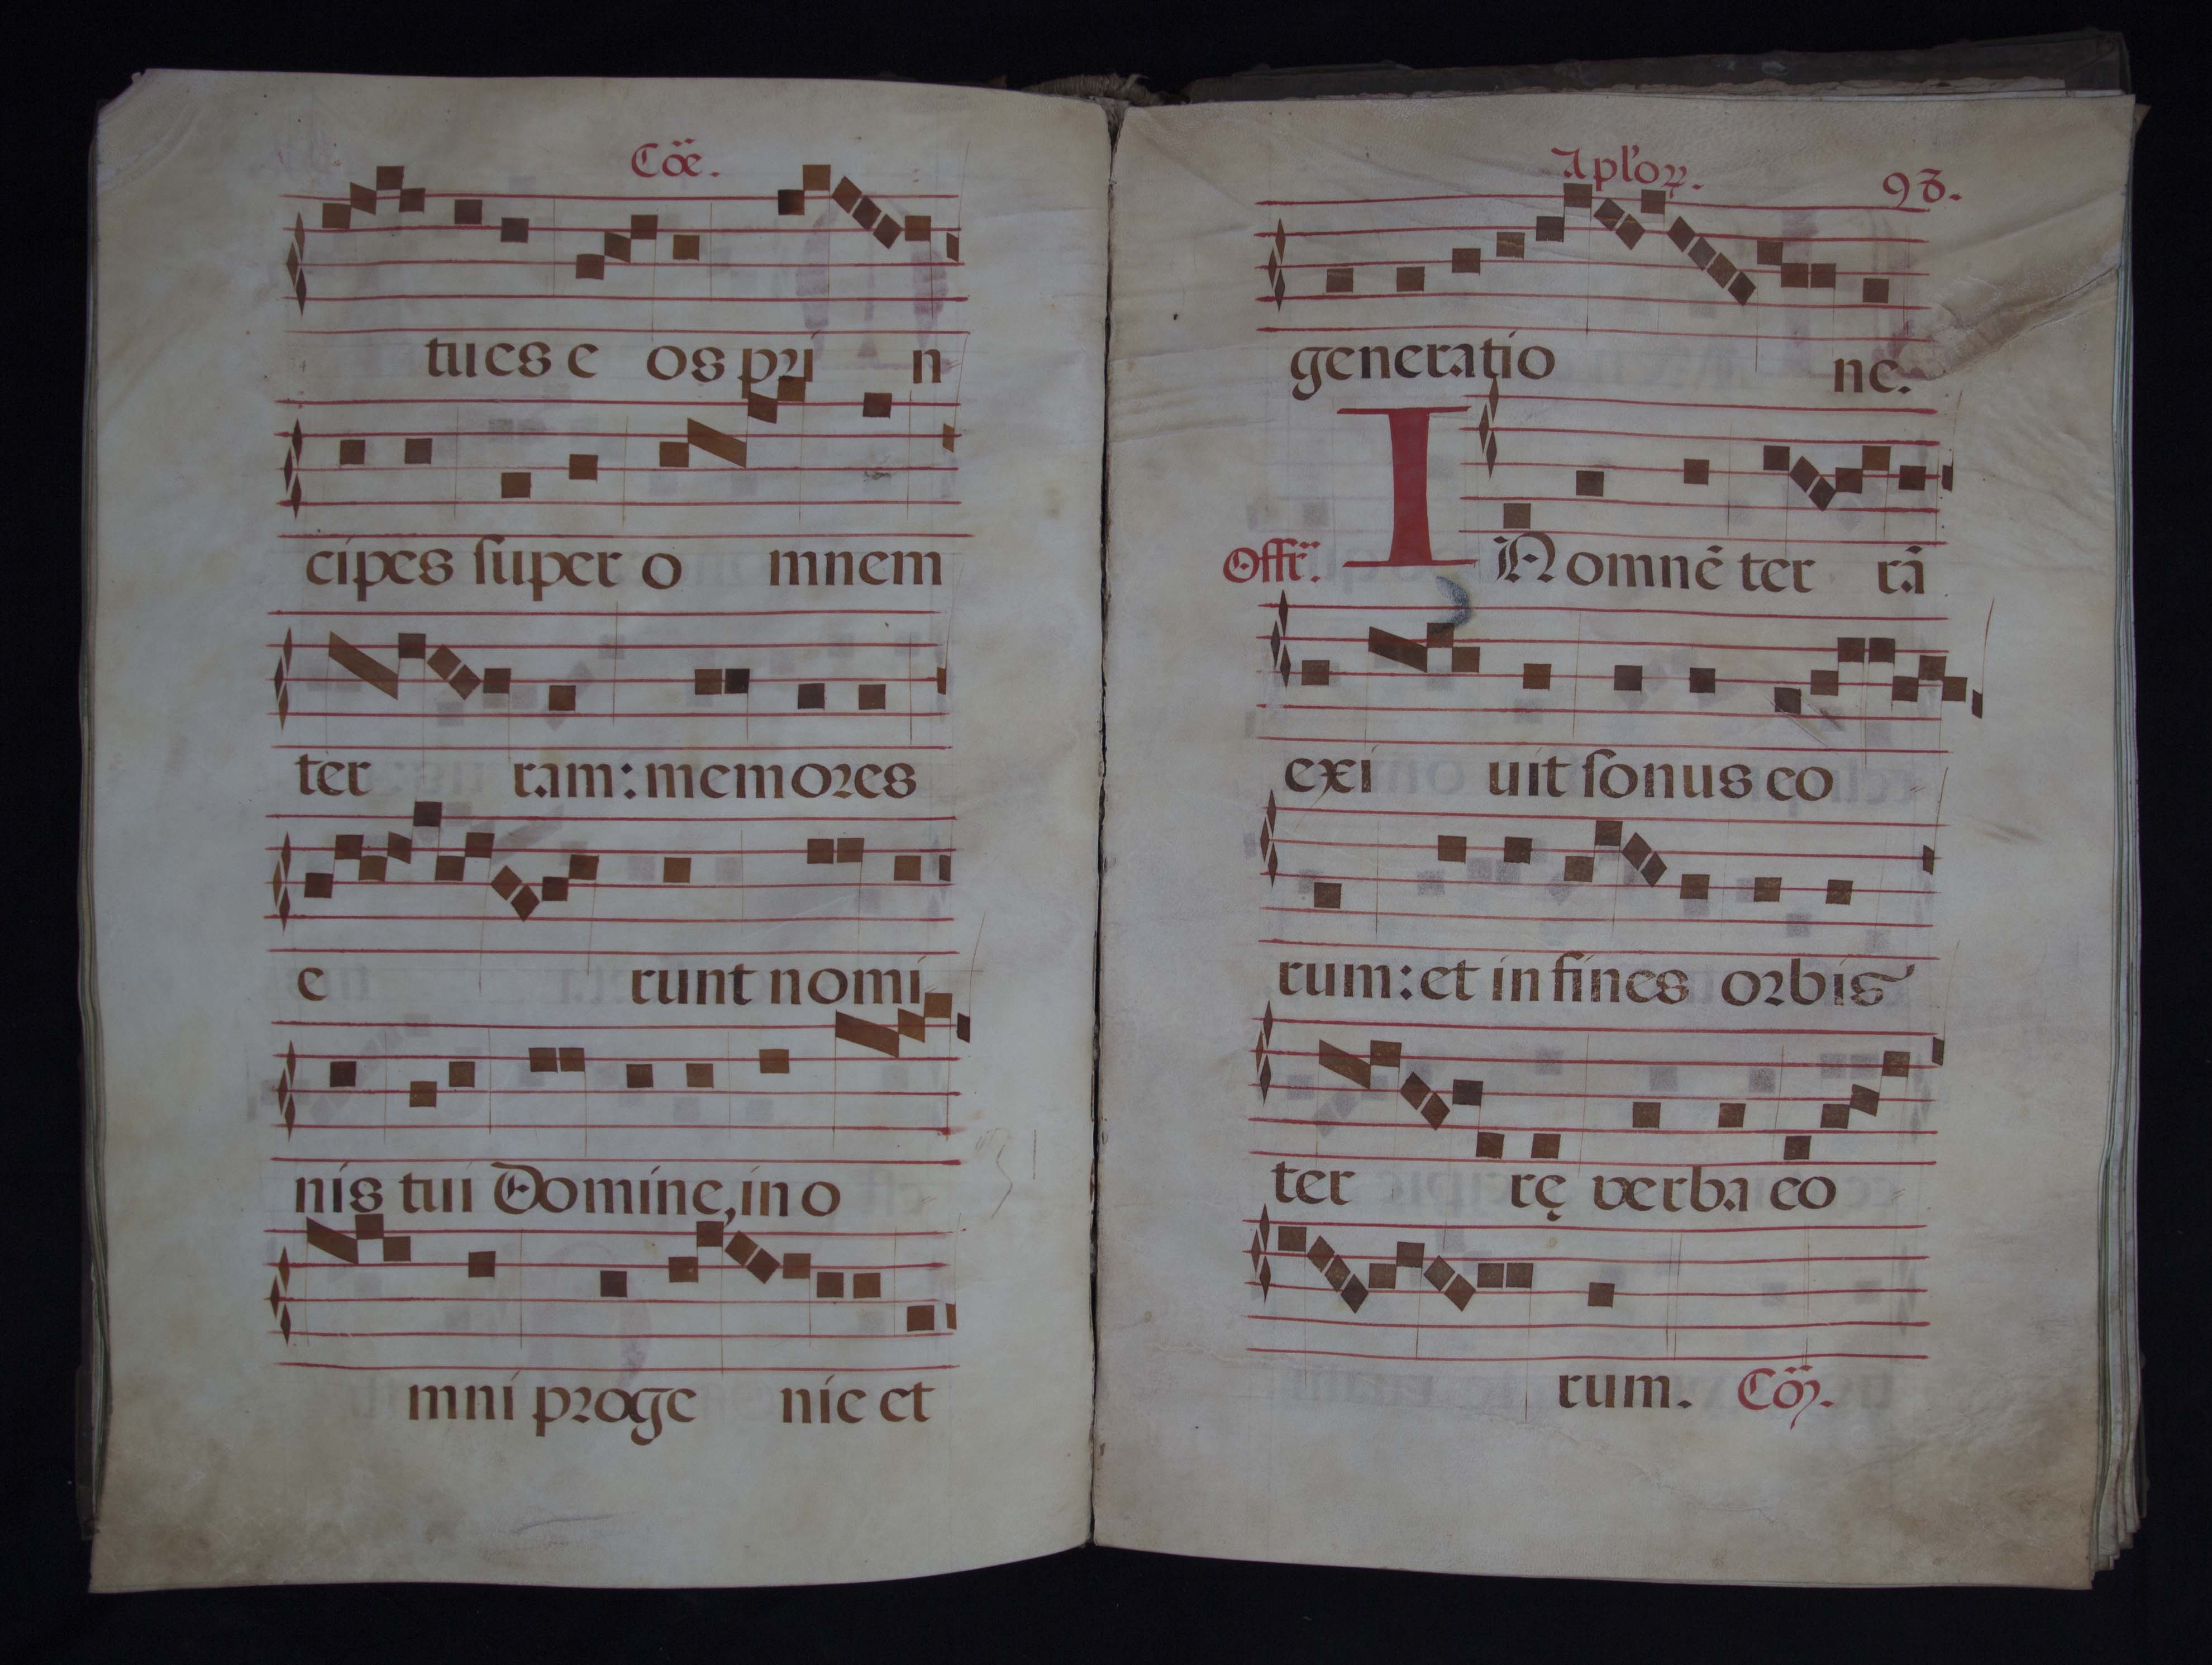 Cōe.
tues e os pri n
cipes ſuper o mnem
ter ram: memores
e runt nomi
nis tui Domine, in o
mni proge nie et
Apl'oꝝ. 93.
generatio ne.
Offr̄. IN omnē ter rā
exi uit ſonus eo
rum: et in fines orbis
ter rę verba eo
rum. Cōȷ.